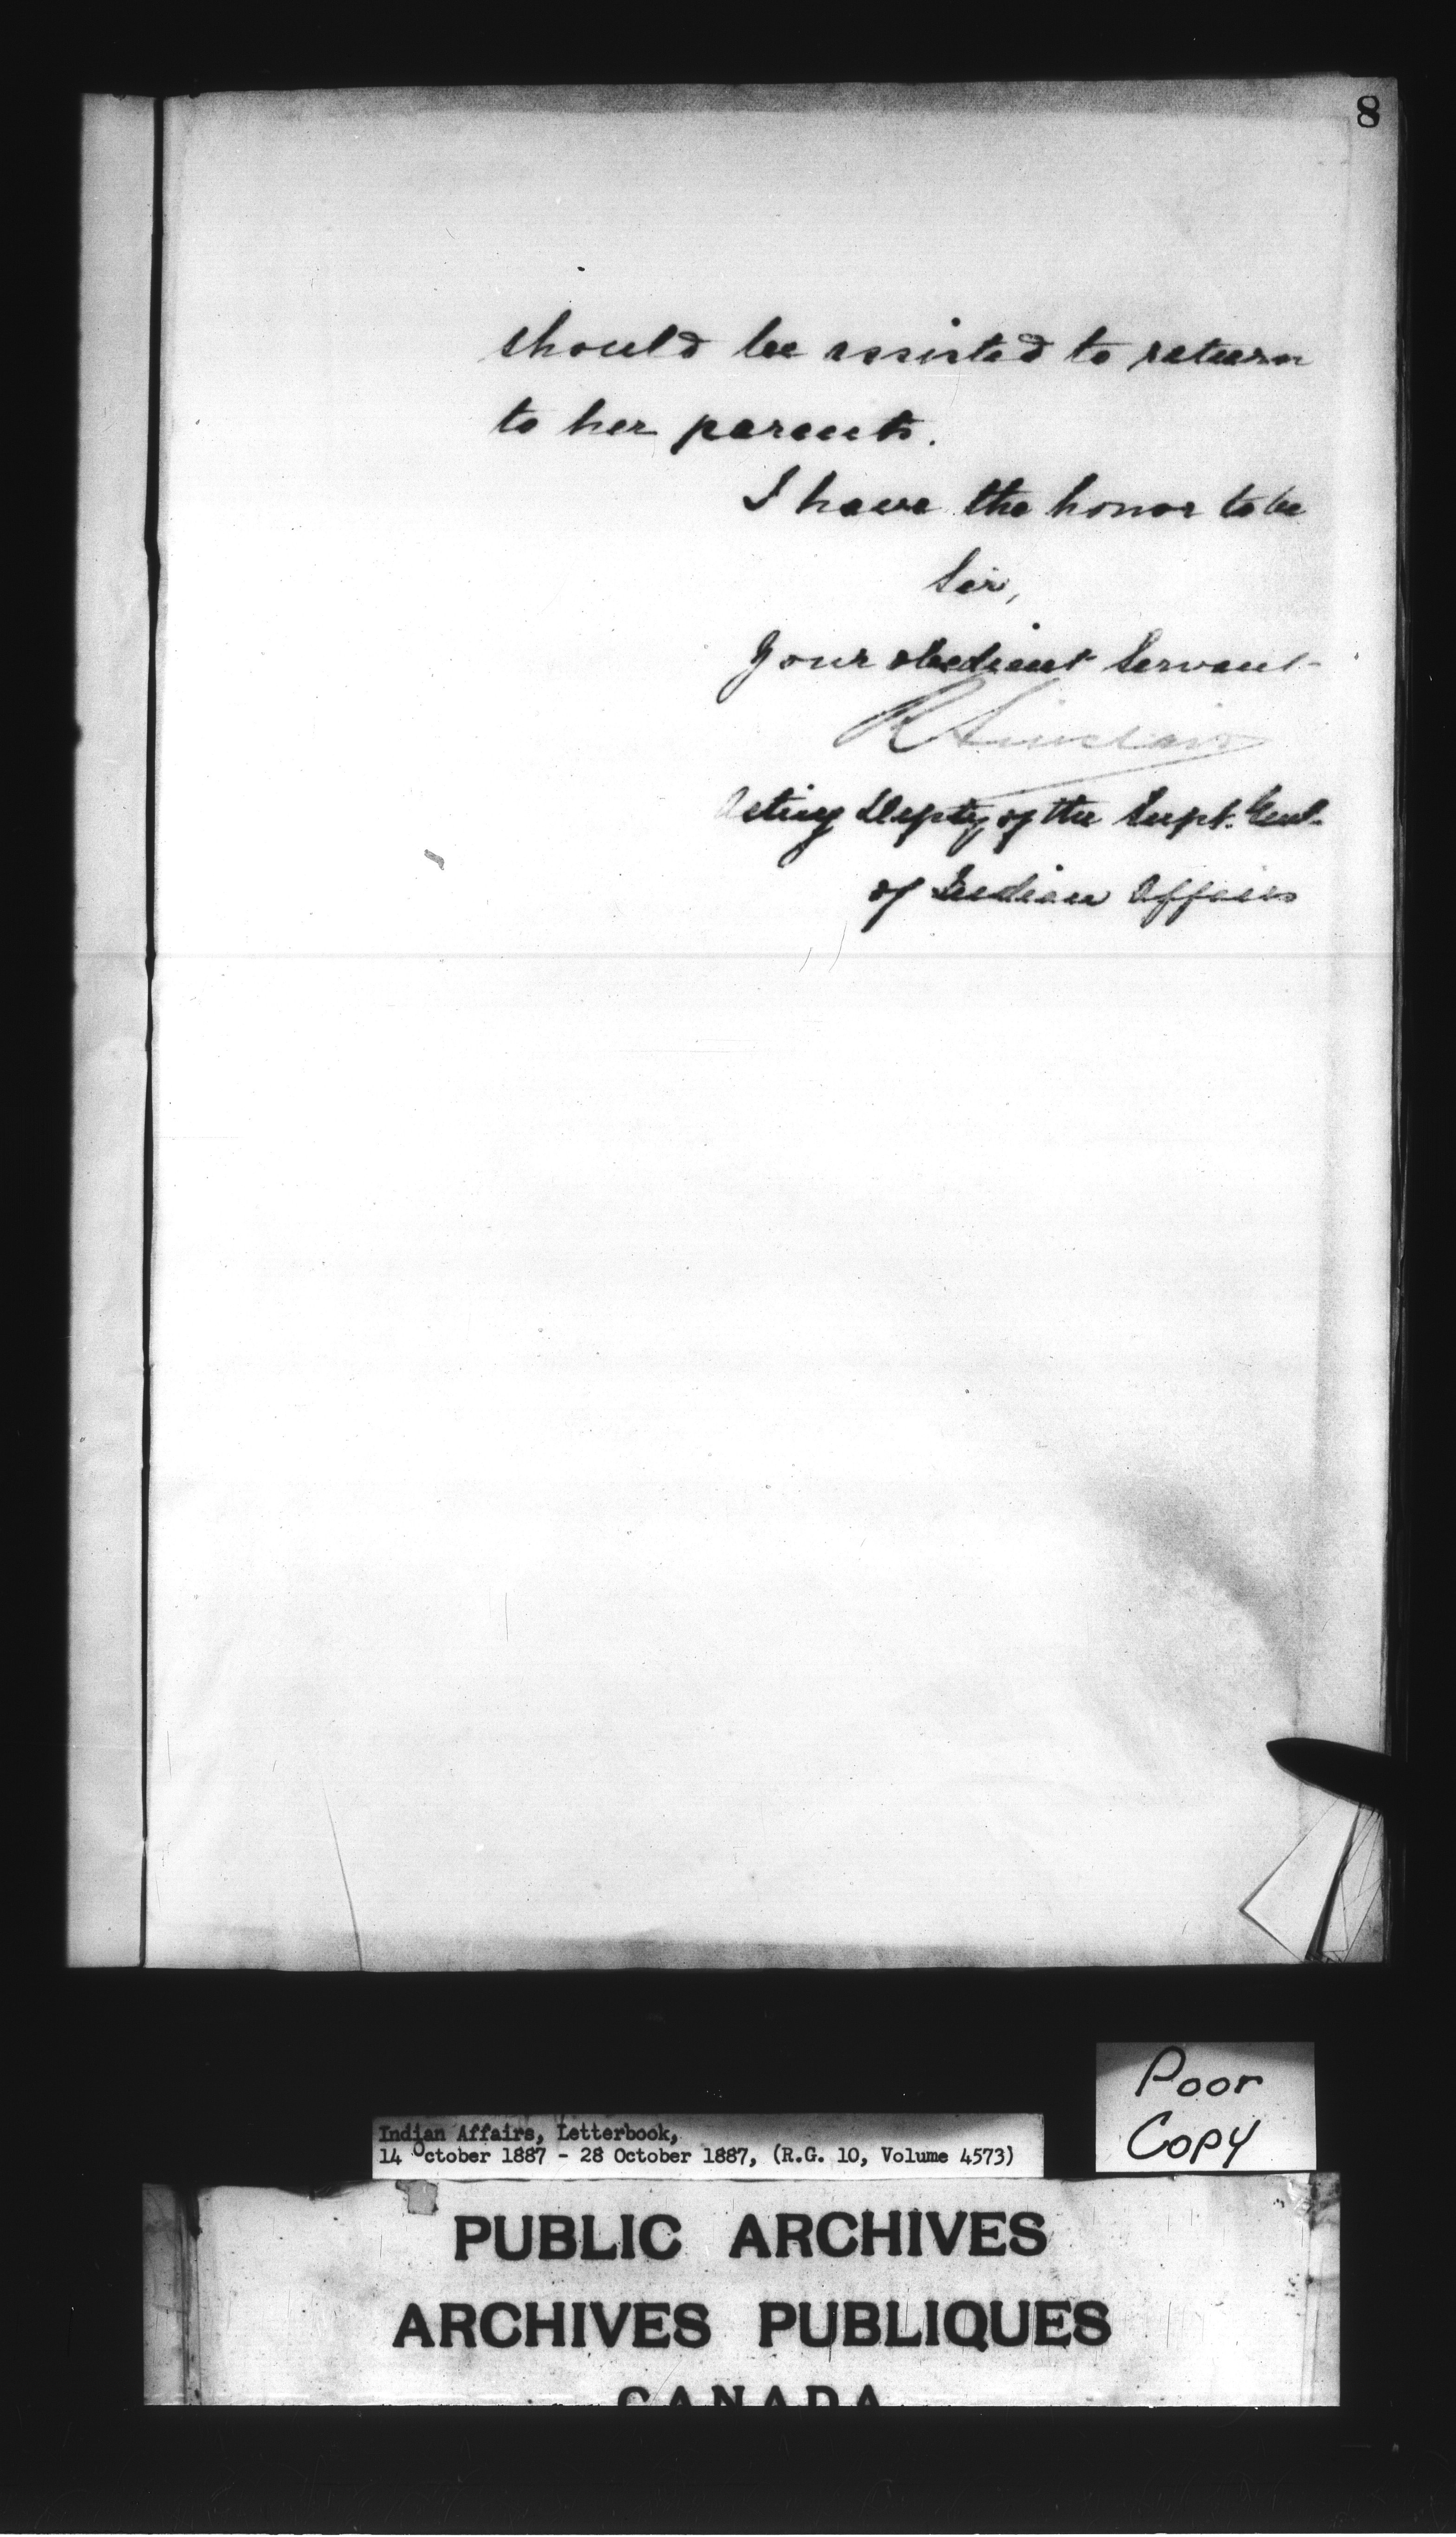 8
should be assisted to return
to her parents.
I have the honor to be
Sir,
Your obedient Servant
R Sinclair
Acting Depty of the Supt. Genl.
of Indian Affairs
Poor
Copy
Indian Affairs, Letterbook,
14 October 1887 - 28 October 1887, (R.G. 10, Volume 4573)
PUBLIC ARCHIVES
ARCHIVES PUBLIQUES
CANADA